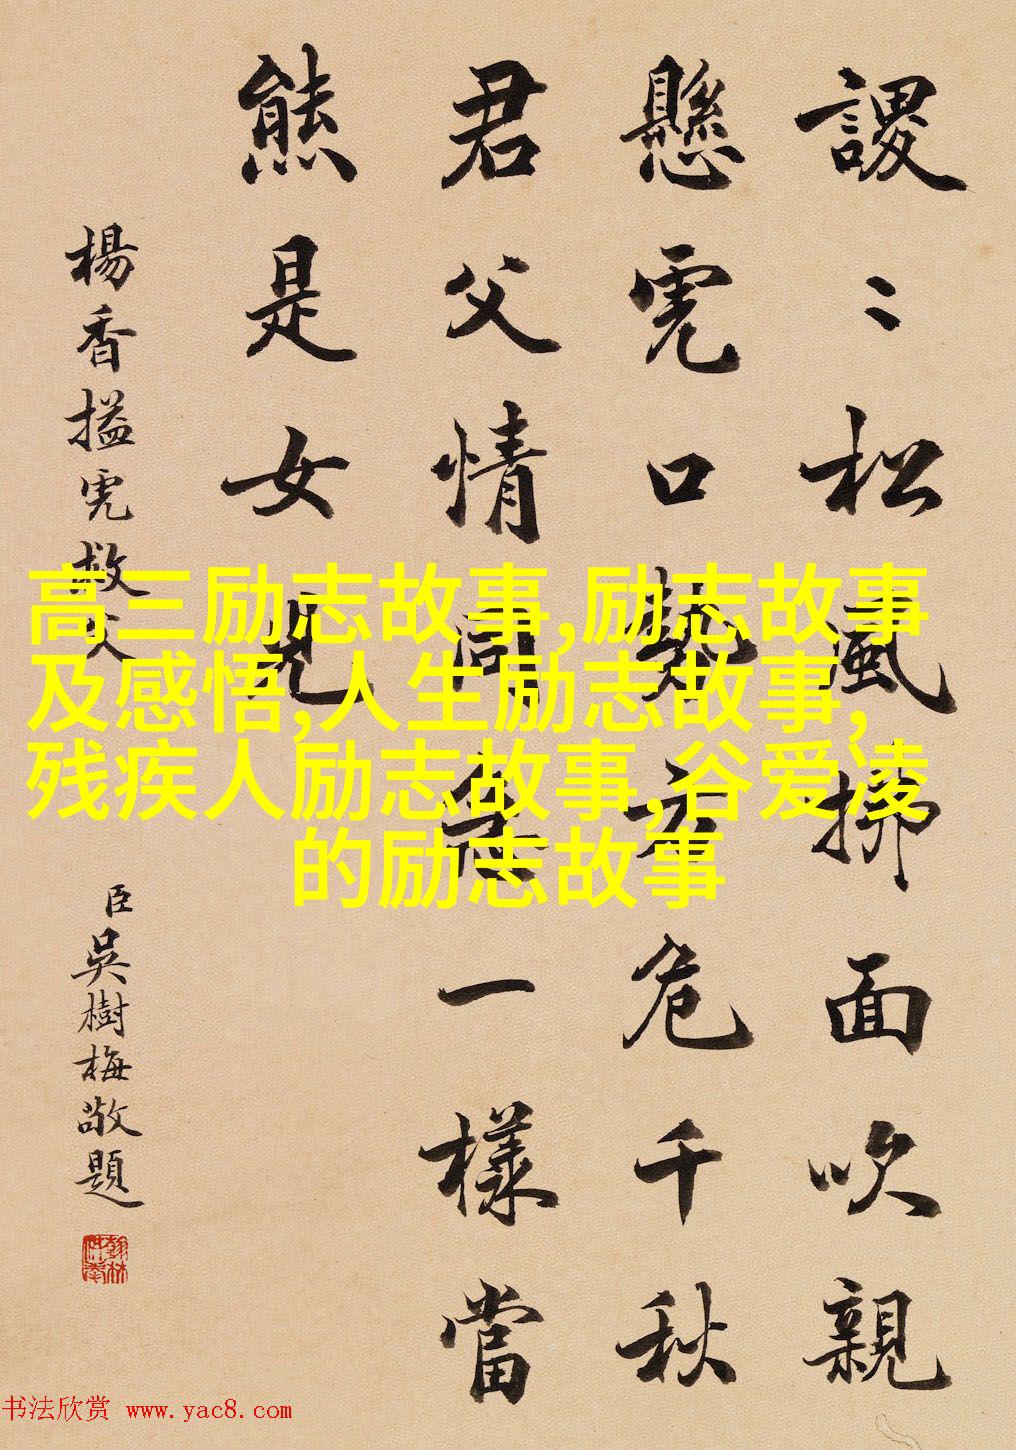 謖〻松風拂面吹親
懸虎口勢方危千秋
君父情同急一樣當
熊是女兒
楊香搤虎救父
臣吳樹梅敬題
高三励志故事,励志故事
及感悟,人生励志故事,
残疾人励志故事,谷爱凌
的励志故事
书法欣赏 www.yac8.com